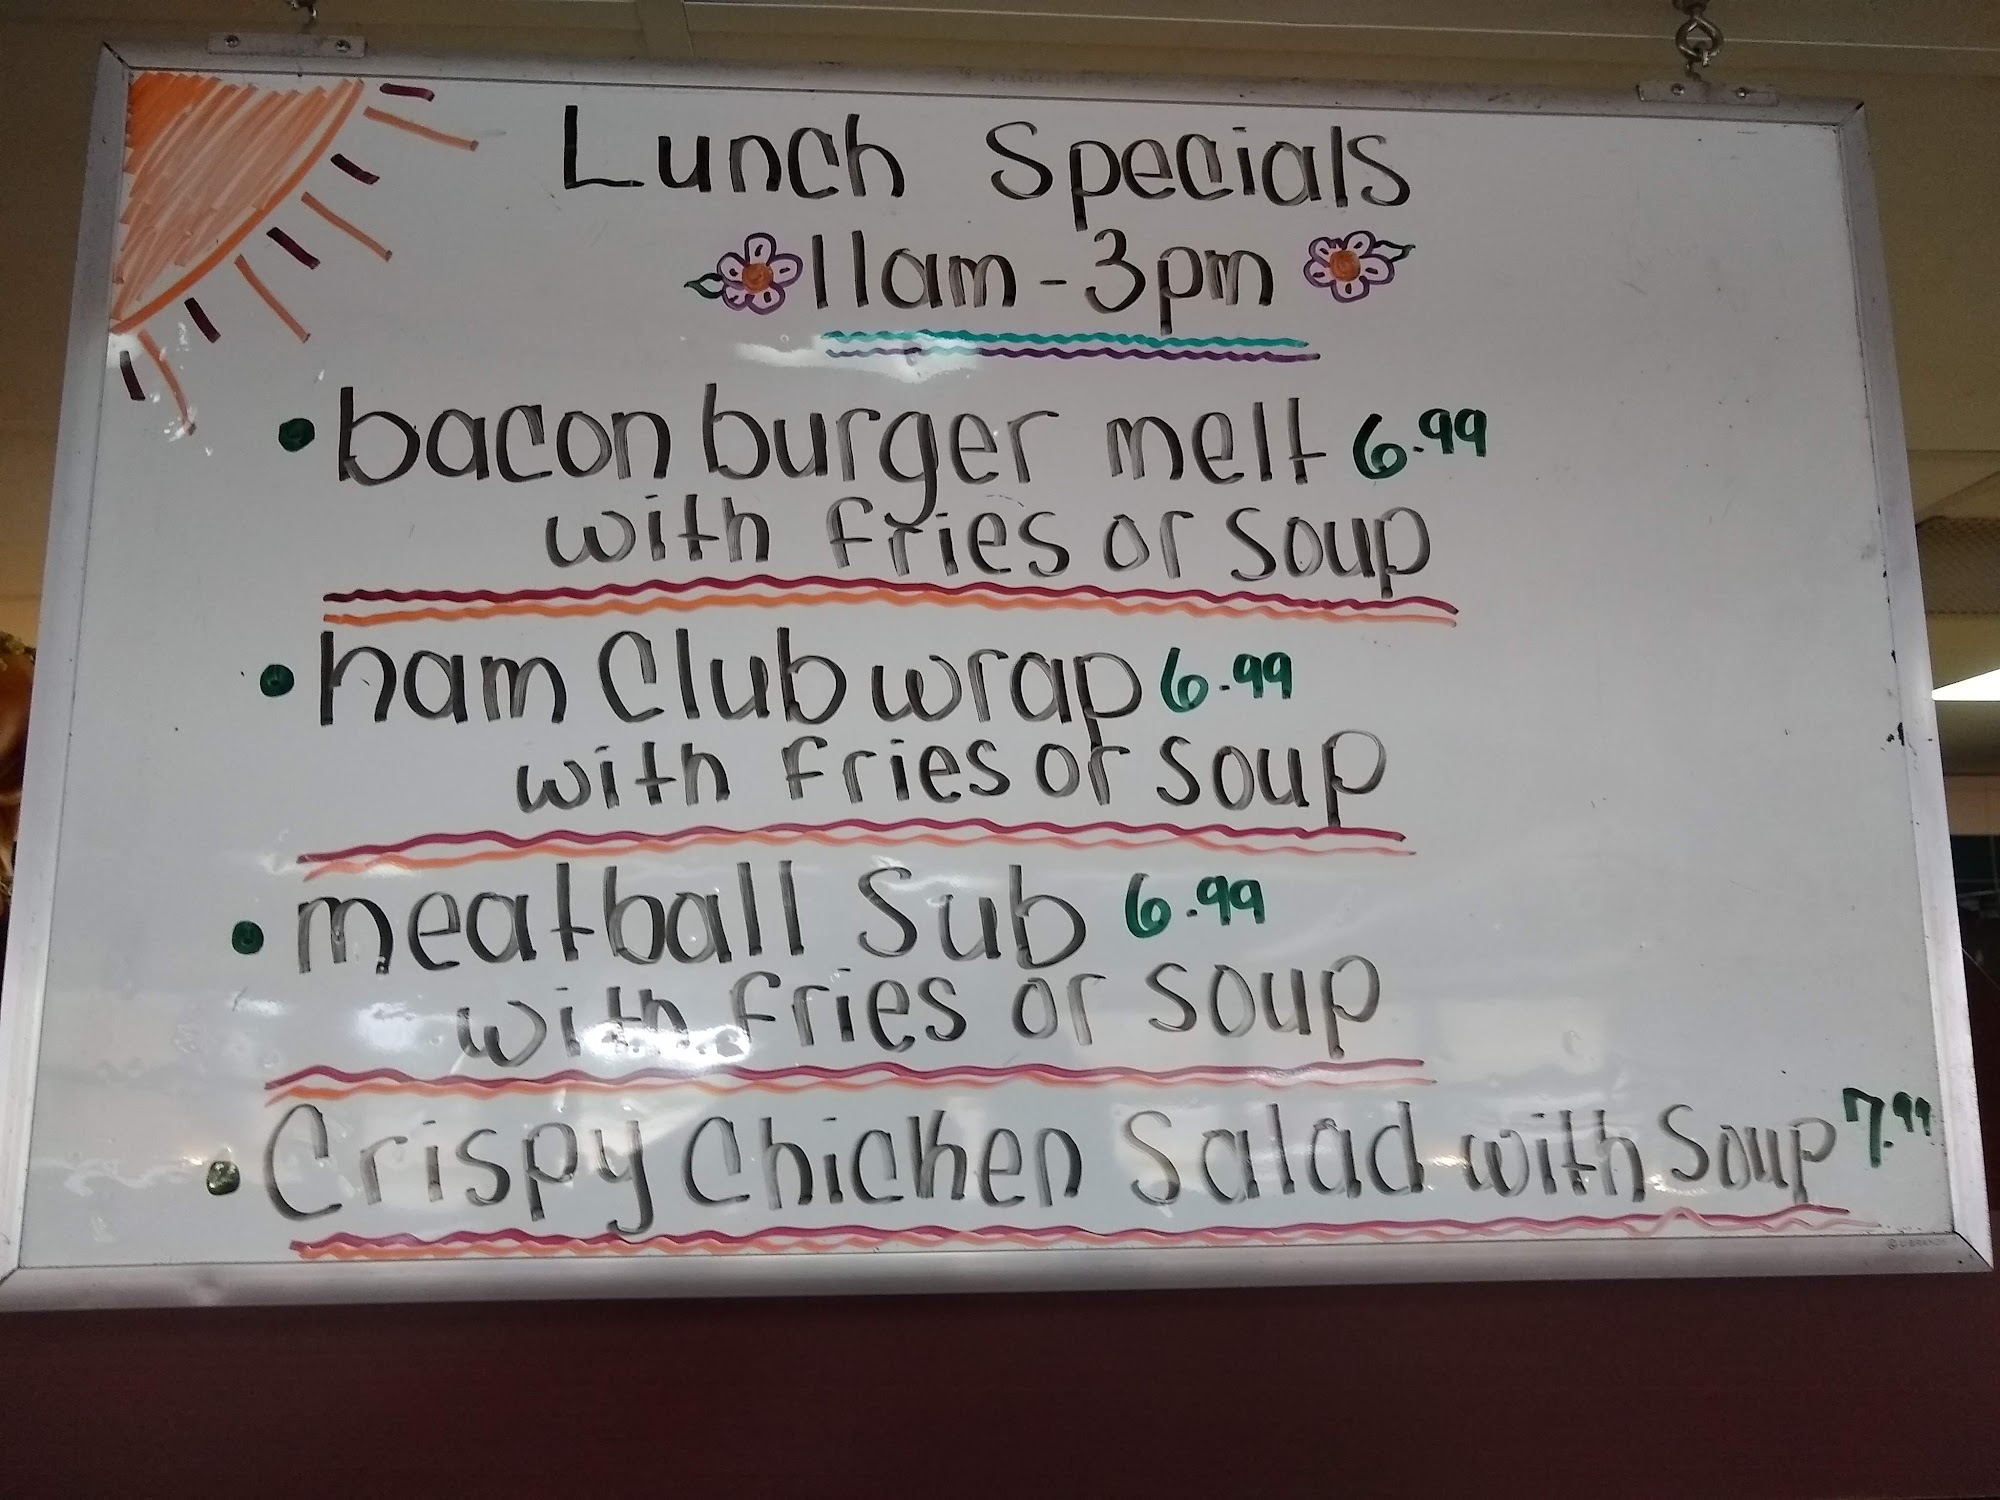 Lunch Specials
11am - 3pm
• bacon burger melt 6.99
with fries or soup
• ham Club wrap 6.99
with fries or soup
• meatball Sub 6.99
with fries or soup
• Crispy Chicken Salad with Soup 7.99